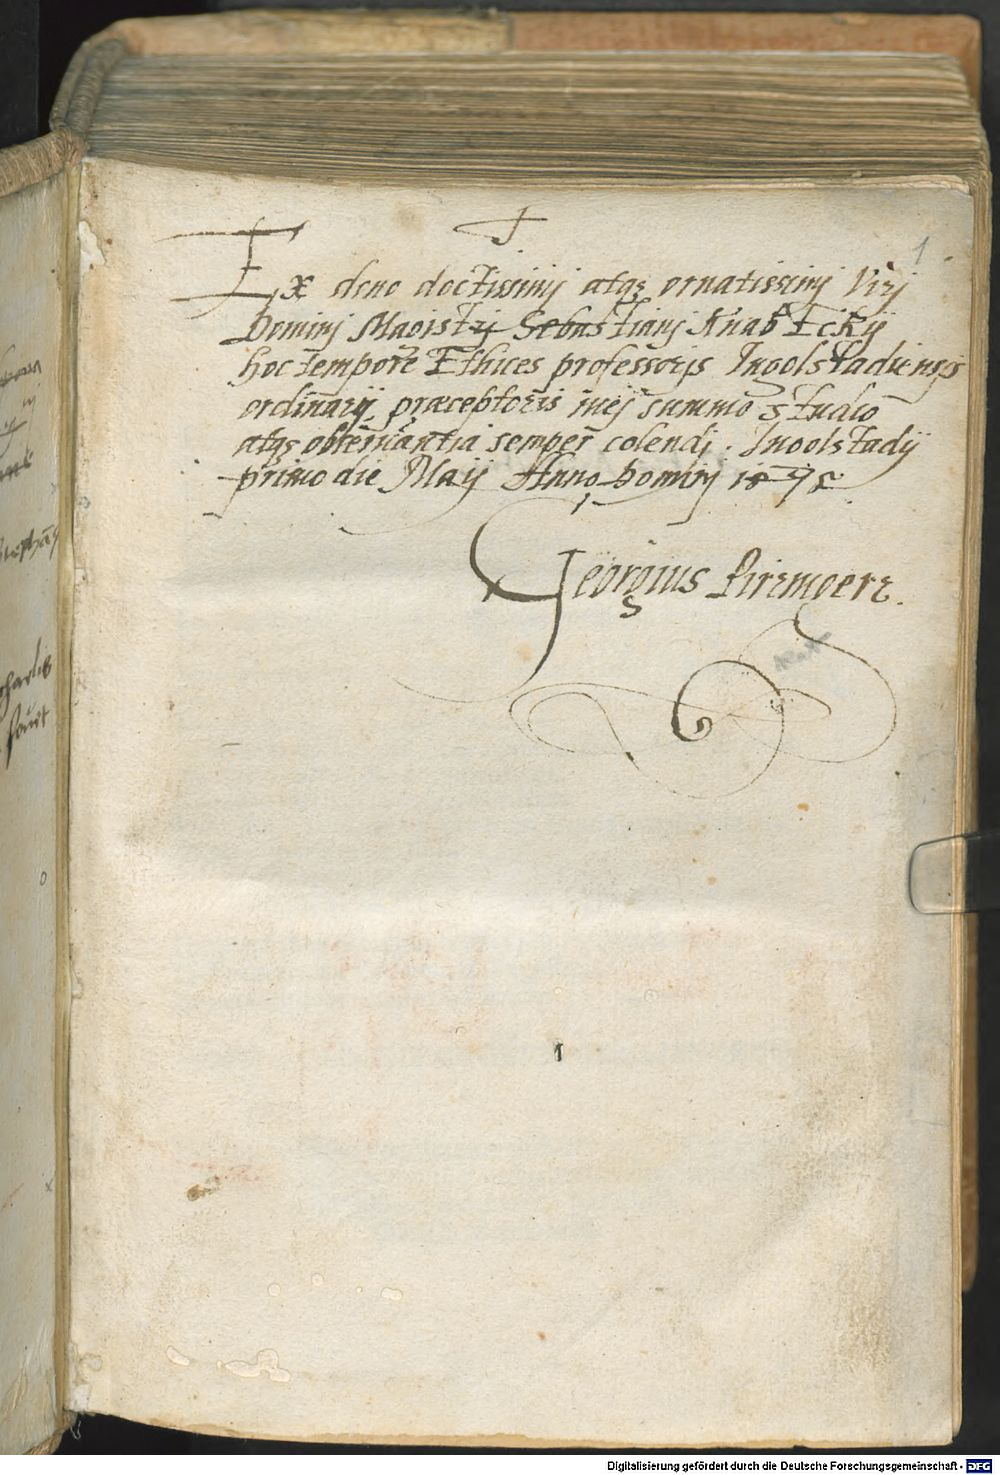 1
Ex dono doctissimj atq3 ornatissimj Virj
Dominj Magistrj Sebastianj Knab Eckij
hoc tempore Ethices professoris Ingolstadiensis
ordinarij, præceptoris mej summo studio
atq3 obseruantia semper colendj. Ingolstadij
primo die Maij Anno Dominj
Georgius Pirzmoerz.
1
Digitalisierung gefördert durch die Deutsche Forschungsgemeinschaft - DFG